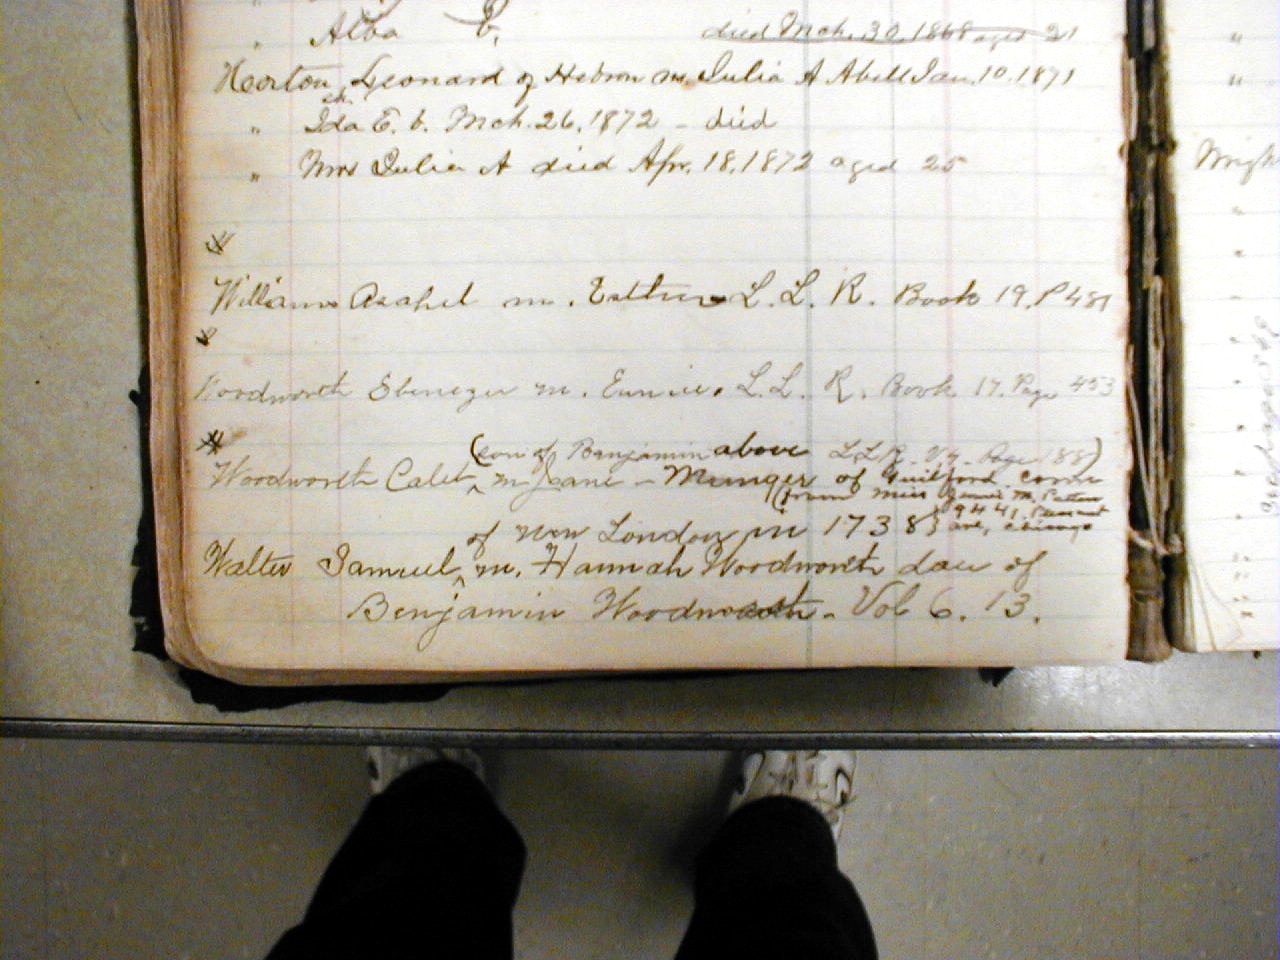 " Alba B. died Mch. 30, 1868 aged 21
Horton Leonard of Hebron m. Julia A Abell Jan. 10, 1871
ch.
" Ida E. b. Mch. 26, 1872 - died
" Mrs Julia A died Apr. 18, 1872 aged 25
Williams Asahel m. Esther L. L. R. Book 19. P 481
Woodworth Ebenezer m. Eunice. L. L. R. Book 17. Page 453
(son of Benjamin above L.L.R. Page 188)
Woodworth Caleb ^ m Jane - Munger of Guilford conn
(from miss Jennie M.
9441,
ave, chicago
of New London in 1738}
Walter Samuel ^ m. Hannah Woodworth dau of
Benjamin Woodworth - Vol 6. 13.
Wright